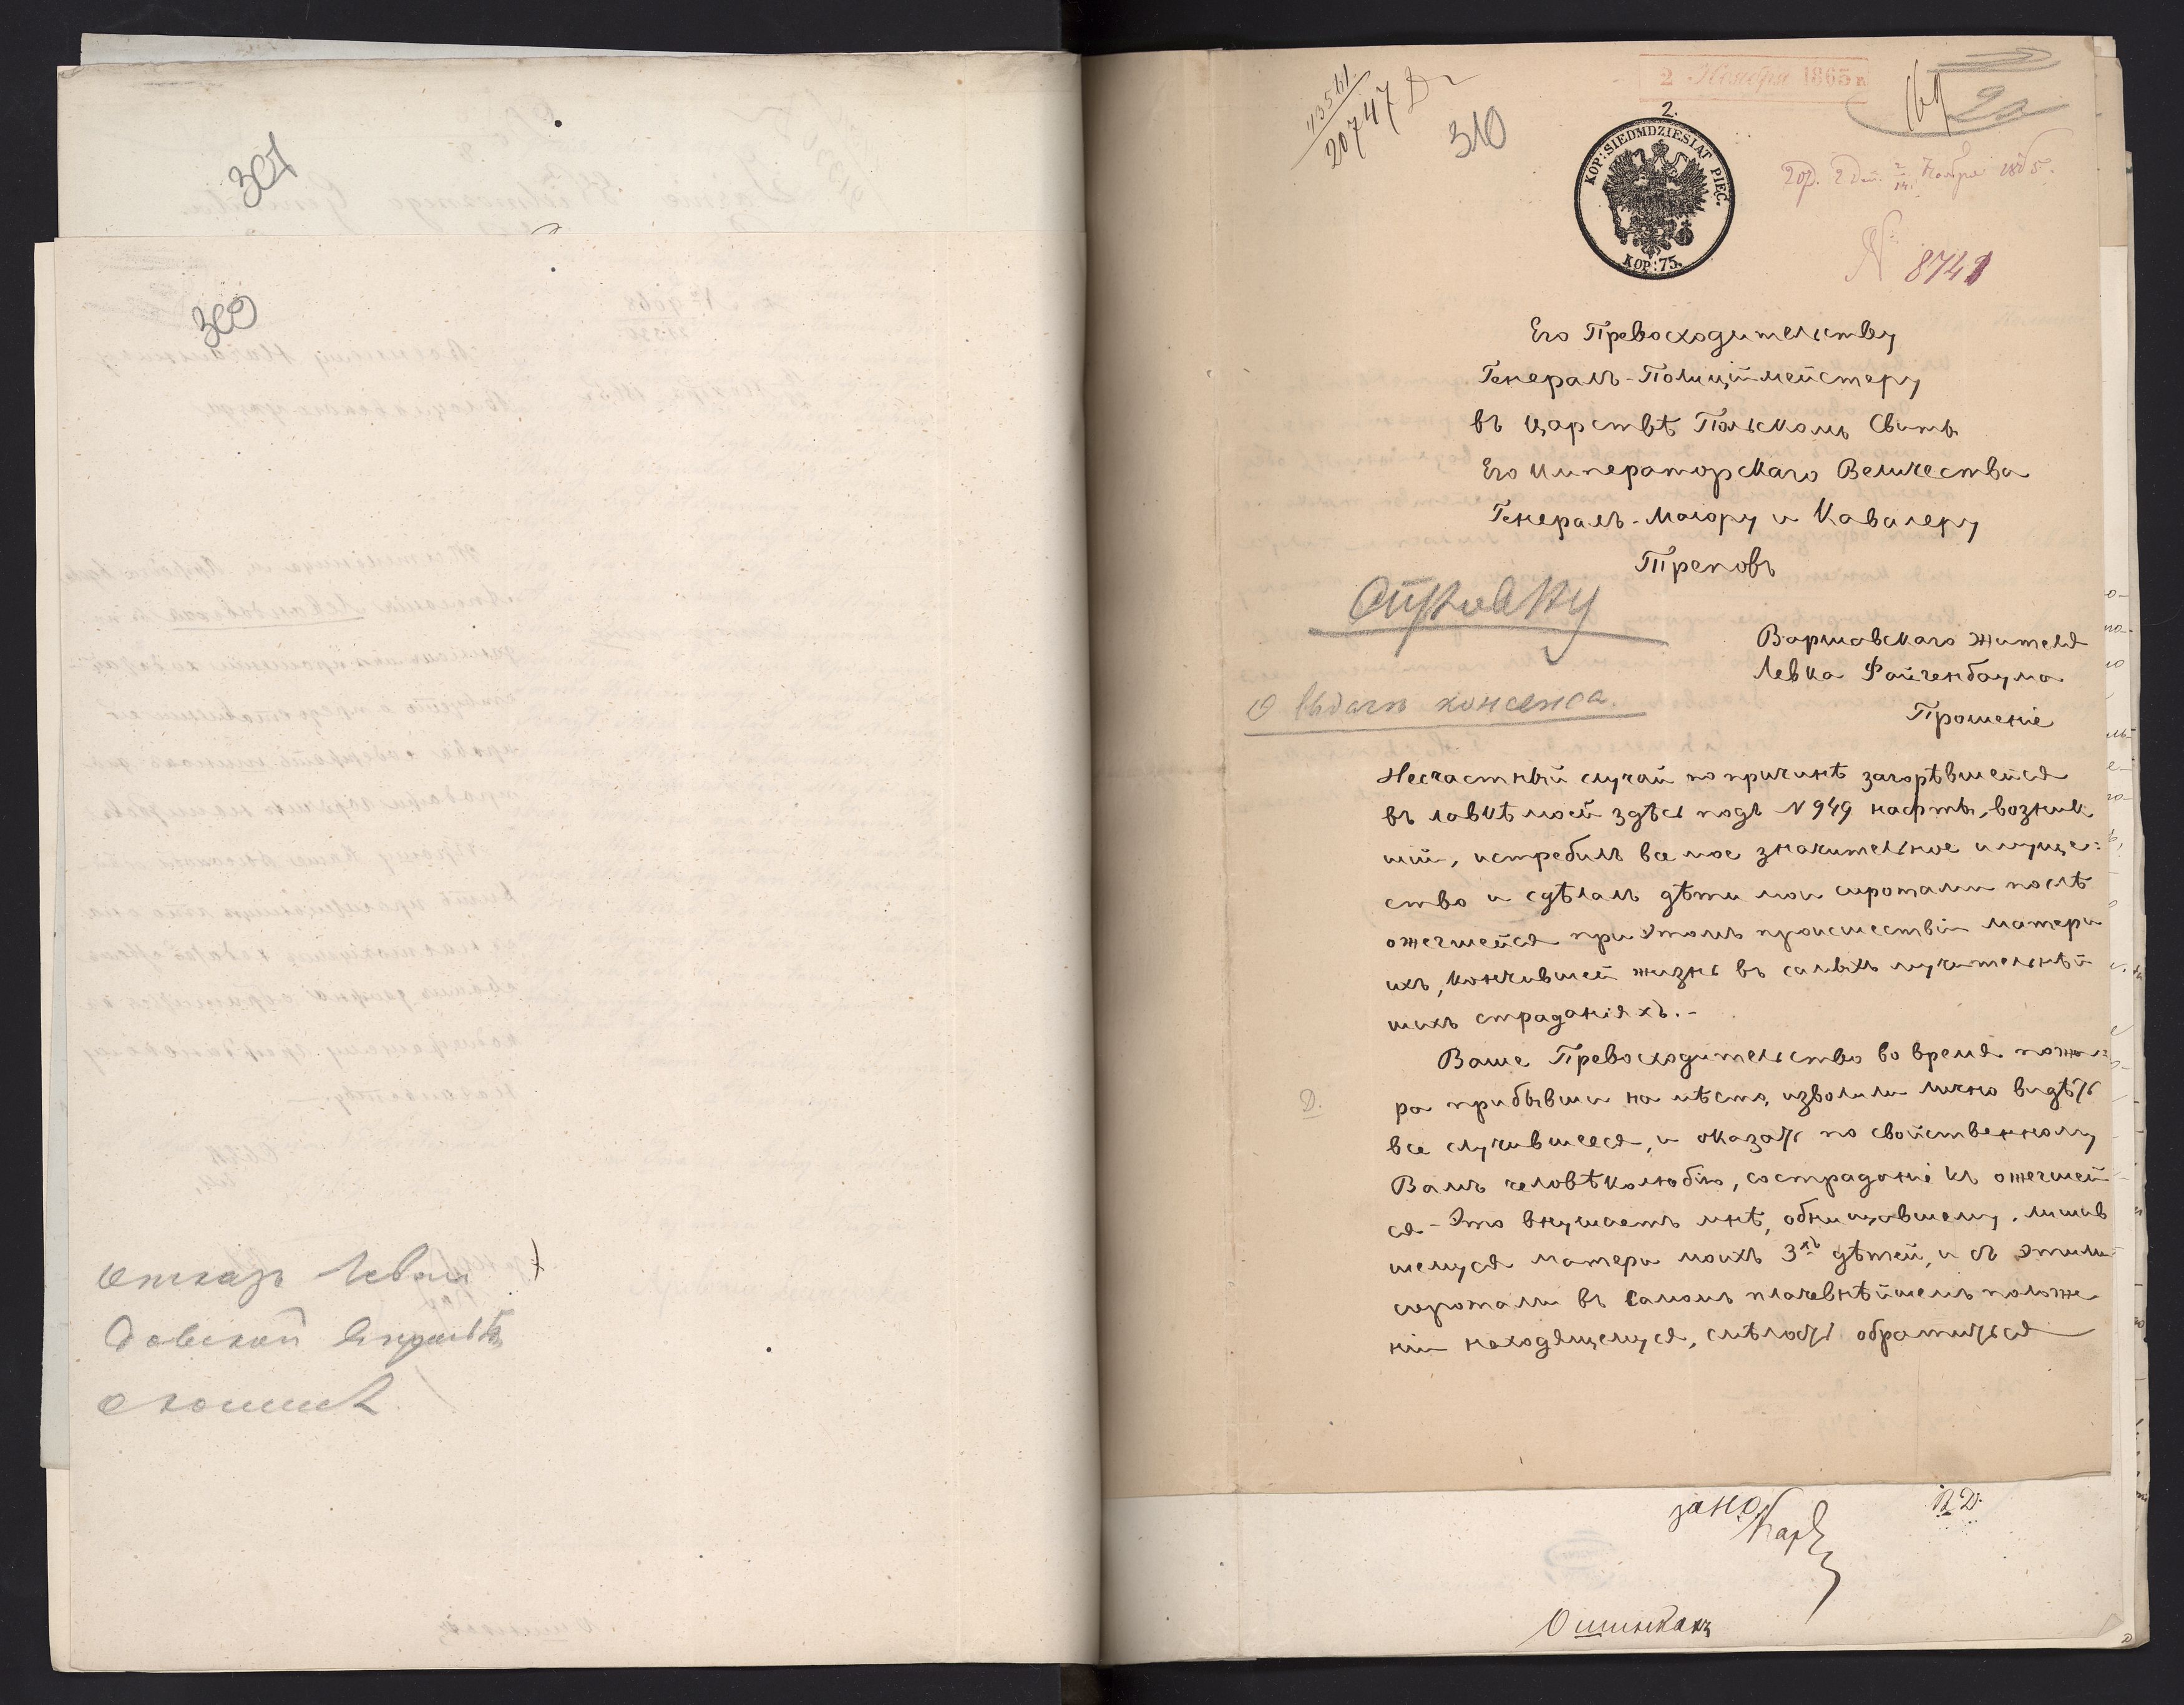 301
300
Отказъ Леван
довской
о шинкѣ
20747
310
2 Ноября 1865 г
2.
KOP: SIEDMDZIESIĄT PIĘĆ.
KOP: 75.
Ноября 1865.
№ 8741
Его Превосходительству
Генералъ-Полицiймейстеру
въ Царствѣ Польскомъ Свиты
Его Императорскаго Величества
Генералъ-Маiору и Кавалеру
Треповъ
Справку
Варшавскаго жителя
Левка Файгенбаума
О выдачѣ консенса.
Прошенiе
Несчастный случай по причинѣ загорѣвшейся
въ лавкѣ моей здѣсь подъ N 949 нафты, возник
шiй, истребилъ все мое значительное имуще:
ство и сдѣлалъ дѣти мои сиротами послѣ
ожегшейся при этомъ происшествiи матери
ихъ, кончившей жизнь въ самыхъ мучительнѣй
шихъ страданiяхъ.-
Ваше Превосходительство во время пожа:
Д.
ра прибывши на мѣсто, изволили лично видѣть
все случившееся, и оказать по свойственному
Вамъ человѣколюбiю, состраданiе къ ожегшей
ся - Это внушаетъ мнѣ, обнищавшему, лишив
шемуся матери моихъ 3хъ дѣтей, и съ этими
сиротами въ самомъ плачевнѣйшемъ положе
нiи находящемуся, смѣлость обратиться
О шинкахъ